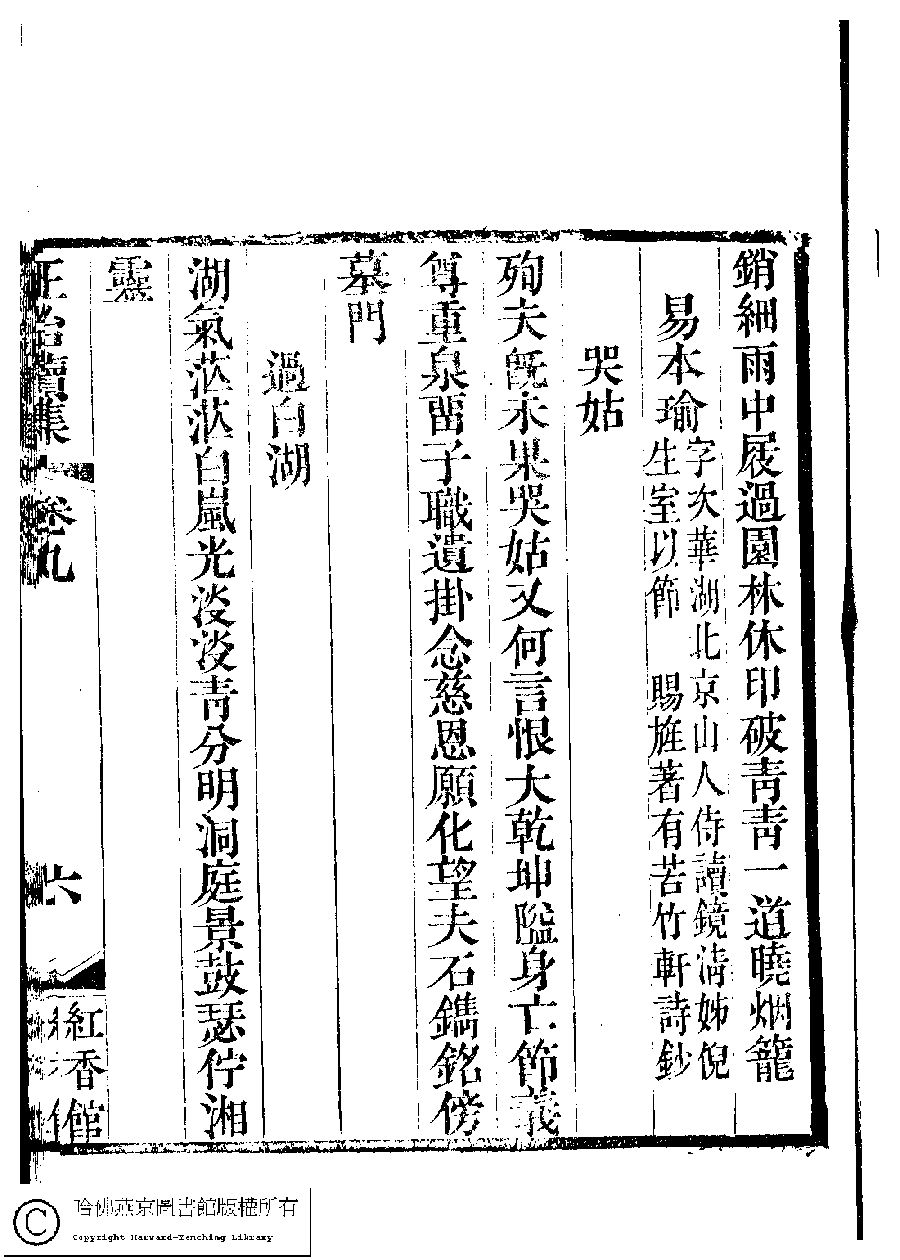 銷細雨中屐過園林休印破靑靑一道曉烟籠
易本瑜字次華湖北京山人侍讀鏡淸姊倪
生室以節　賜旌著有苦竹軒詩鈔
哭姑
殉夫旣未果哭姑又何言恨大乾坤隘身亡節義
尊重泉畱子職遺掛念慈恩願化望夫石鐫銘傍
墓門
過白湖
湖氣茫茫白嵐光淡淡靑分明洞庭景鼓瑟佇湘
靈
正始續集
卷九
六
紅香館
哈佛燕京圖書館版權所有
Copyright Harvard-Yenching Library